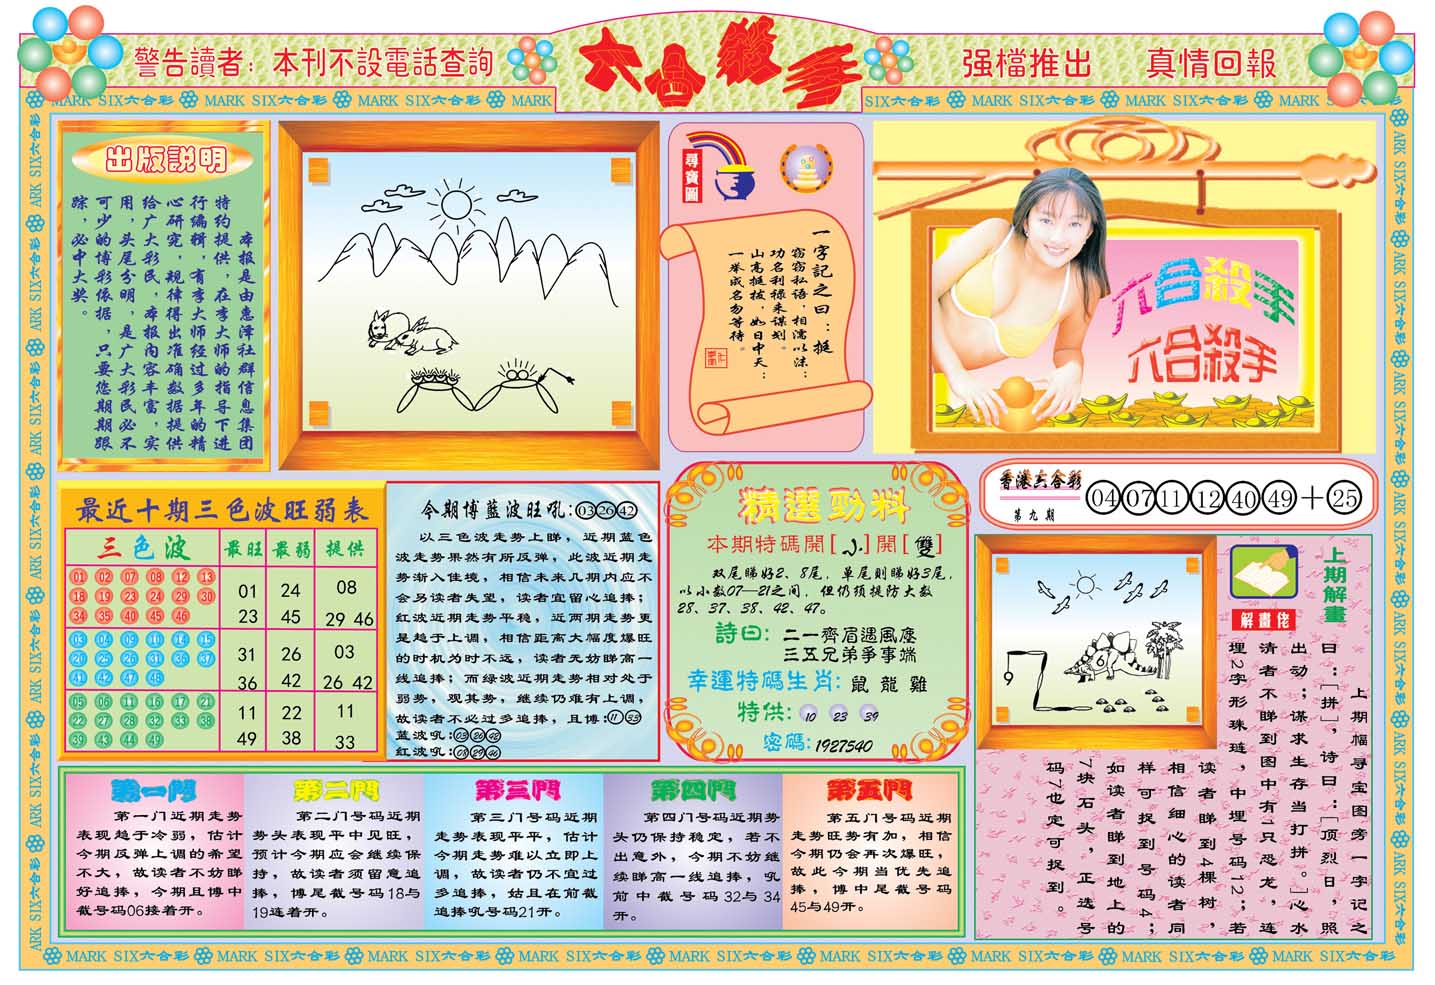 警告讀者：本刊不設電話查詢
六合殺手
强檔推出 真情回報
MARK SIX六合彩 MARK SIX六合彩 MARK SIX六合彩 MARK
SIX六合彩 MARK SIX六合彩 MARK SIX六合彩 MARK SIX六合彩
出版説明
本报是由惠泽社群信息集团
特约提供，在李大师的指导下进
行编辑，有李大师经过多年的精
心研究，规律得出准确数据提供
给广大彩民，本报内容丰富，实
用，头尾分明，是广大彩民必不
可少的博彩依据，只要您期期跟
踪，必中大奖。
尋寶圖
一字記之曰：挺
窃窃私语，相濡以沫：
功名利禄来谋划。
山高挺拔，如日中天：
一举成名勿等待。
六合殺手
六合殺手
香港六合彩
第九期
04 07 11 12 40 49 + 25
最近十期三色波旺弱表
三色波 最旺 最弱 提供
01 02 07 08 12 13
18 19 23 24 29 30
34 35 40 45 46
01 24 08
23 45 29 46
03 04 09 10 14 15
20 25 26 31 36 37
41 42 47 48
31 26 03
36 42 26 42
05 06 11 16 17 21
22 27 28 32 33 38
39 43 44 49
11 22 11
49 38 33
今期博蓝波旺吼：03 26 42
以三色波走势上睇，近期蓝色
波走势果然有所反弹，此波近期走
势渐入佳境，相信未来几期内应不
会另读者失望，读者宜留心追捧；
红波近期走势平稳，近两期走势更
是趋于上调，相信距离大幅度爆旺
的时机为时不远，读者无妨睇高一
线追捧；而绿波近期走势相对处于
弱势，观其势，继续仍难有上调，
故读者不必过多追捧，且博：11 33
蓝波吼：03 26 42
红波吼：08 29 46
精選勁料
本期特碼開[小]開[雙]
双尾睇好2、8尾，单尾则睇好3尾，
以小数07—21之间，但仍须提防大数
28、37、38、42、47。
詩曰：二一齊眉遇風塵
三五兄弟爭事端
幸運特碼生肖：鼠 龍 雞
特供：10 23 39
密碼：1927540
上期解畫
解畫佬
上期幅寻宝图旁一字记之
曰：［拼］，诗曰：［顶烈日，照
出动；谋求生存当打拼。］心水
清者不睇到图中有1只恐龙，连
埋2字形珠琏，中埋号码12；若
读者睇到4棵树，
相信细心的读者同
样可捉到号码4；
如读者睇到地上的
7块石头，正选号
码7也定可捉到。
第一門
第一门近期走势
表现趋于冷弱，估计
今期反弹上调的希望
不大，故读者不妨睇
好追捧，今期且博中
截号码06接着开。
第二門
第二门号码近期
势头表现平中见旺，
预计今期应会继续保
持，故读者须留意追
捧，博尾截号码18与
19连着开。
第三門
第三门号码近期
走势表现平平，估计
今期走势难以立即上
调，故读者仍不宜过
多追捧，姑且在前截
追捧吼号码21开。
第四門
第四门号码近期势
头仍保持稳定，若不
出意外，今期不妨继
续睇高一线追捧，吼
前中截号码32与34
开。
第五門
第五门号码近期
走势旺势有加，相信
今期仍会再次爆旺，
故此今期当优先追
捧，博中尾截号码
45与49开。
MARK SIX六合彩 MARK SIX六合彩 MARK SIX六合彩 MARK SIX六合彩 MARK SIX六合彩 MARK SIX六合彩 MARK SIX六合彩 MARK SIX六合彩 MARK SIX六合彩